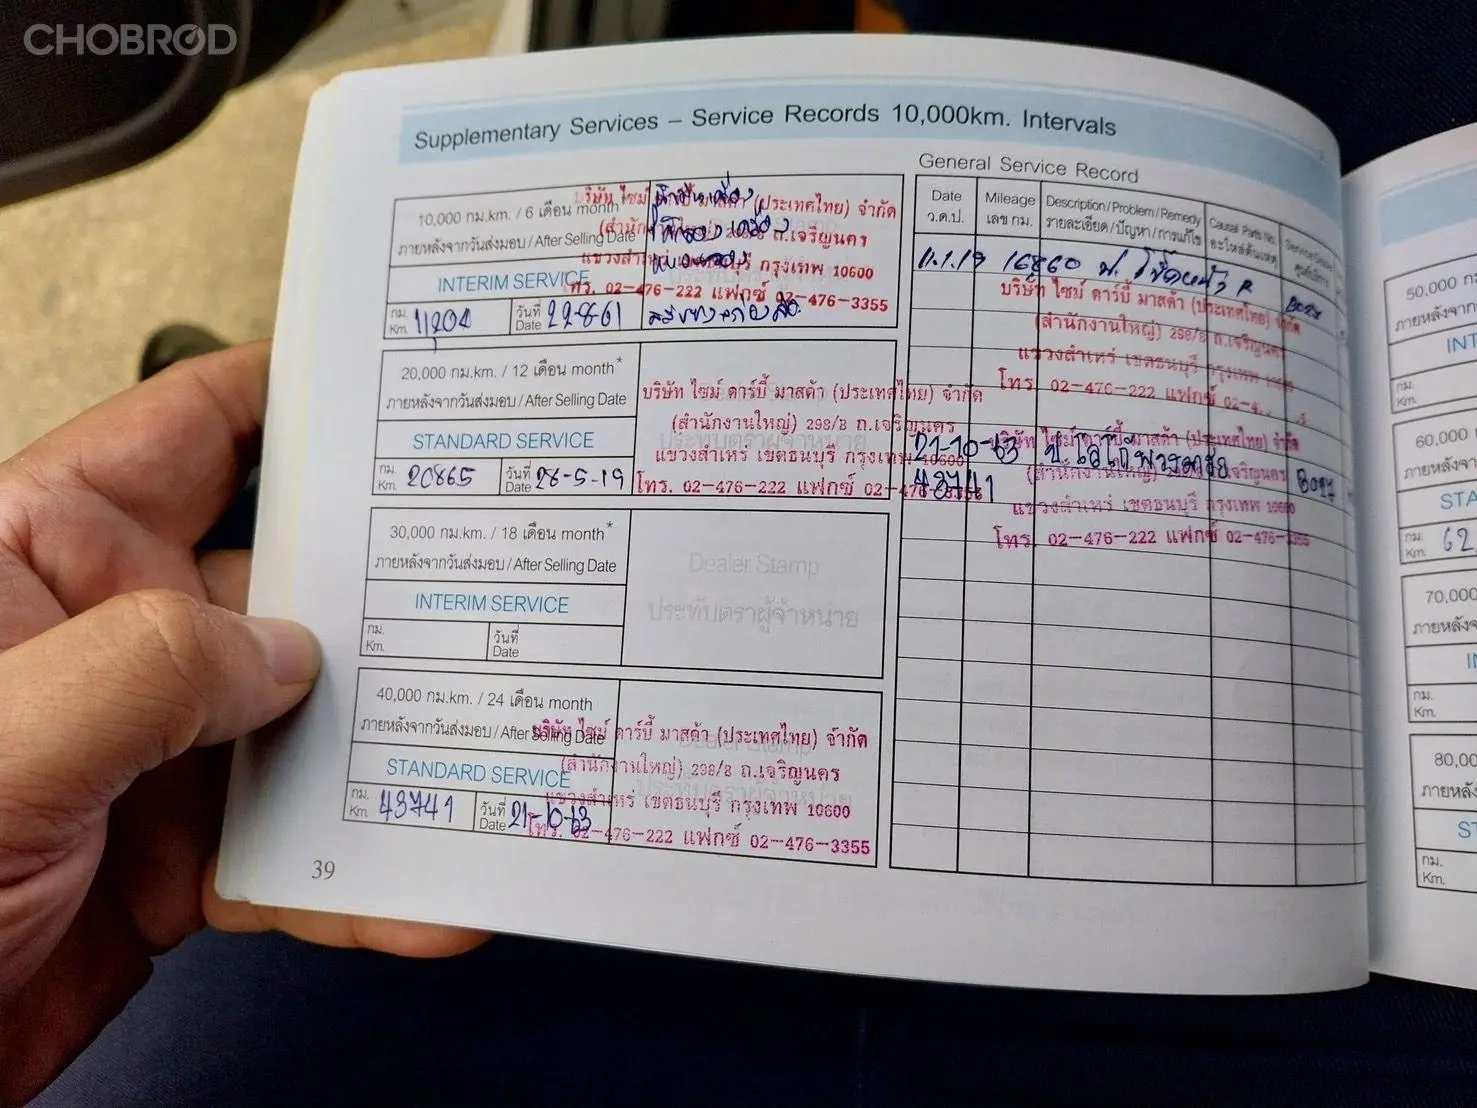 CHOBROD
Supplementary Services – Service Records 10,000km. Intervals
10,000 กม.km. / 6 เดือน month
ภายหลังจากวันส่งมอบ / After Selling Date
INTERIM SERVICE
กม. Km. 11,202 วันที่ Date 22-8-61
บริษัท ไซม์ (ประเทศไทย) จำกัด
ถ.เจริญนคร
กรุงเทพ 10600
โทร. 02-476-222 แฟกซ์ 02-476-3355
20,000 กม.km. / 12 เดือน month*
ภายหลังจากวันส่งมอบ / After Selling Date
STANDARD SERVICE
กม. Km. 20865 วันที่ Date 26-5-19
บริษัท ไซม์ ดาร์บี้ มาสด้า (ประเทศไทย) จำกัด
(สำนักงานใหญ่) 298/8 ถ.เจริญนคร
แขวงสำเหร่ เขตธนบุรี กรุงเทพ 10600
โทร. 02-476-222 แฟกซ์ 02-476-3355
30,000 กม.km. / 18 เดือน month*
ภายหลังจากวันส่งมอบ / After Selling Date
INTERIM SERVICE
กม. Km. วันที่ Date
Dealer Stamp
ประทับตราผู้จำหน่าย
40,000 กม.km. / 24 เดือน month
ภายหลังจากวันส่งมอบ / After Selling Date
STANDARD SERVICE
กม. Km. 43741 วันที่ Date 21-10-63
บริษัท ไซม์ ดาร์บี้ มาสด้า (ประเทศไทย) จำกัด
(สำนักงานใหญ่) 298/8 ถ.เจริญนคร
แขวงสำเหร่ เขตธนบุรี กรุงเทพ 10600
โทร. 02-476-222 แฟกซ์ 02-476-3355
39
General Service Record
Date Mileage Description / Problem / Remedy Causal Parts No.
ว.ด.ป. เลข กม. รายละเอียด / ปัญหา / การแก้ไข อะไหล่ต้นเหตุ
11.1.19 16860
บริษัท ไซม์ ดาร์บี้ มาสด้า (ประเทศไทย) จำกัด
(สำนักงานใหญ่) 298/8 ถ.เจริญนคร
แขวงสำเหร่ เขตธนบุรี กรุงเทพ 10600
โทร. 02-476-222 แฟกซ์
21-10-63
43741
บริษัท ไซม์ ดาร์บี้ มาสด้า (ประเทศไทย) จำกัด
(สำนักงานใหญ่) ถ.เจริญนคร
แขวงสำเหร่ เขตธนบุรี กรุงเทพ 10600
โทร. 02-476-222 แฟกซ์ 02-476-3355
50,000
กม. Km.
60,000
กม. Km. 62
70,000
กม. Km.
80,00
กม. Km.